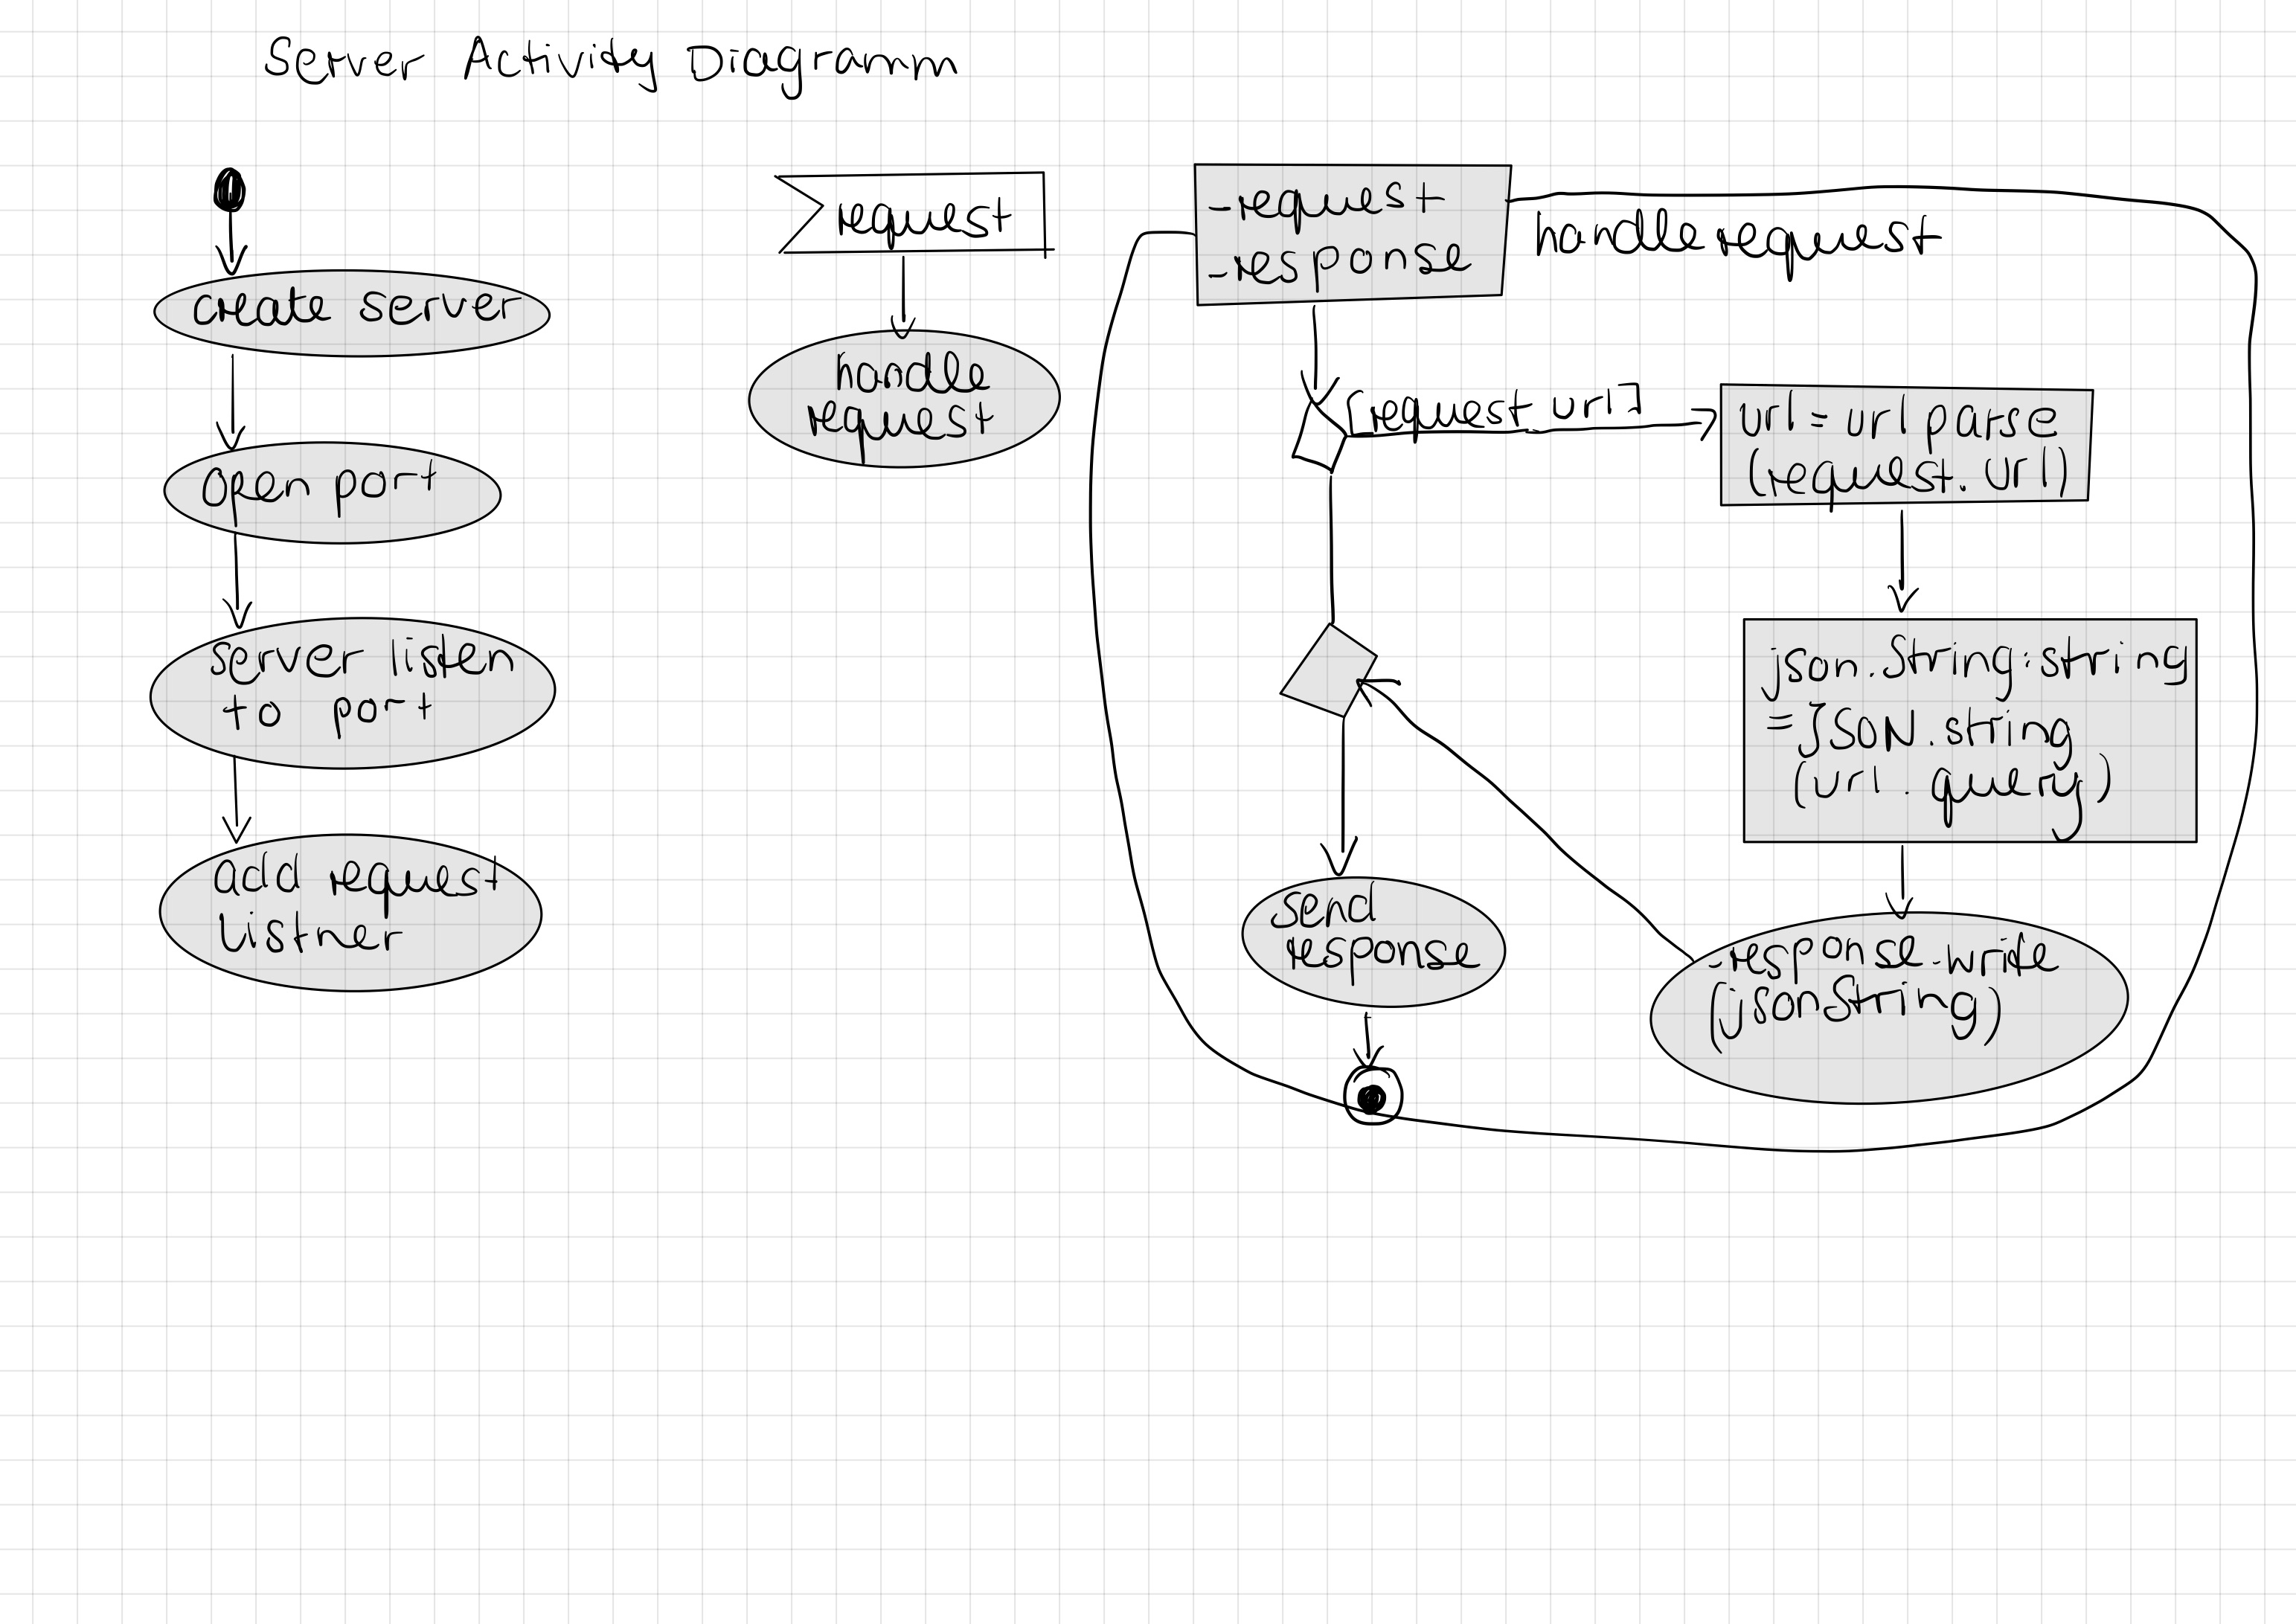 Server Activity Diagramm
create server
open port
server listen
to port
add request
listner
request
handle
request
-request
-response
handle request
[request url]
url = url parse
(request. url)
json.String:string
=JSON.string
(url.query)
-response.write
(jsonString)
send
response